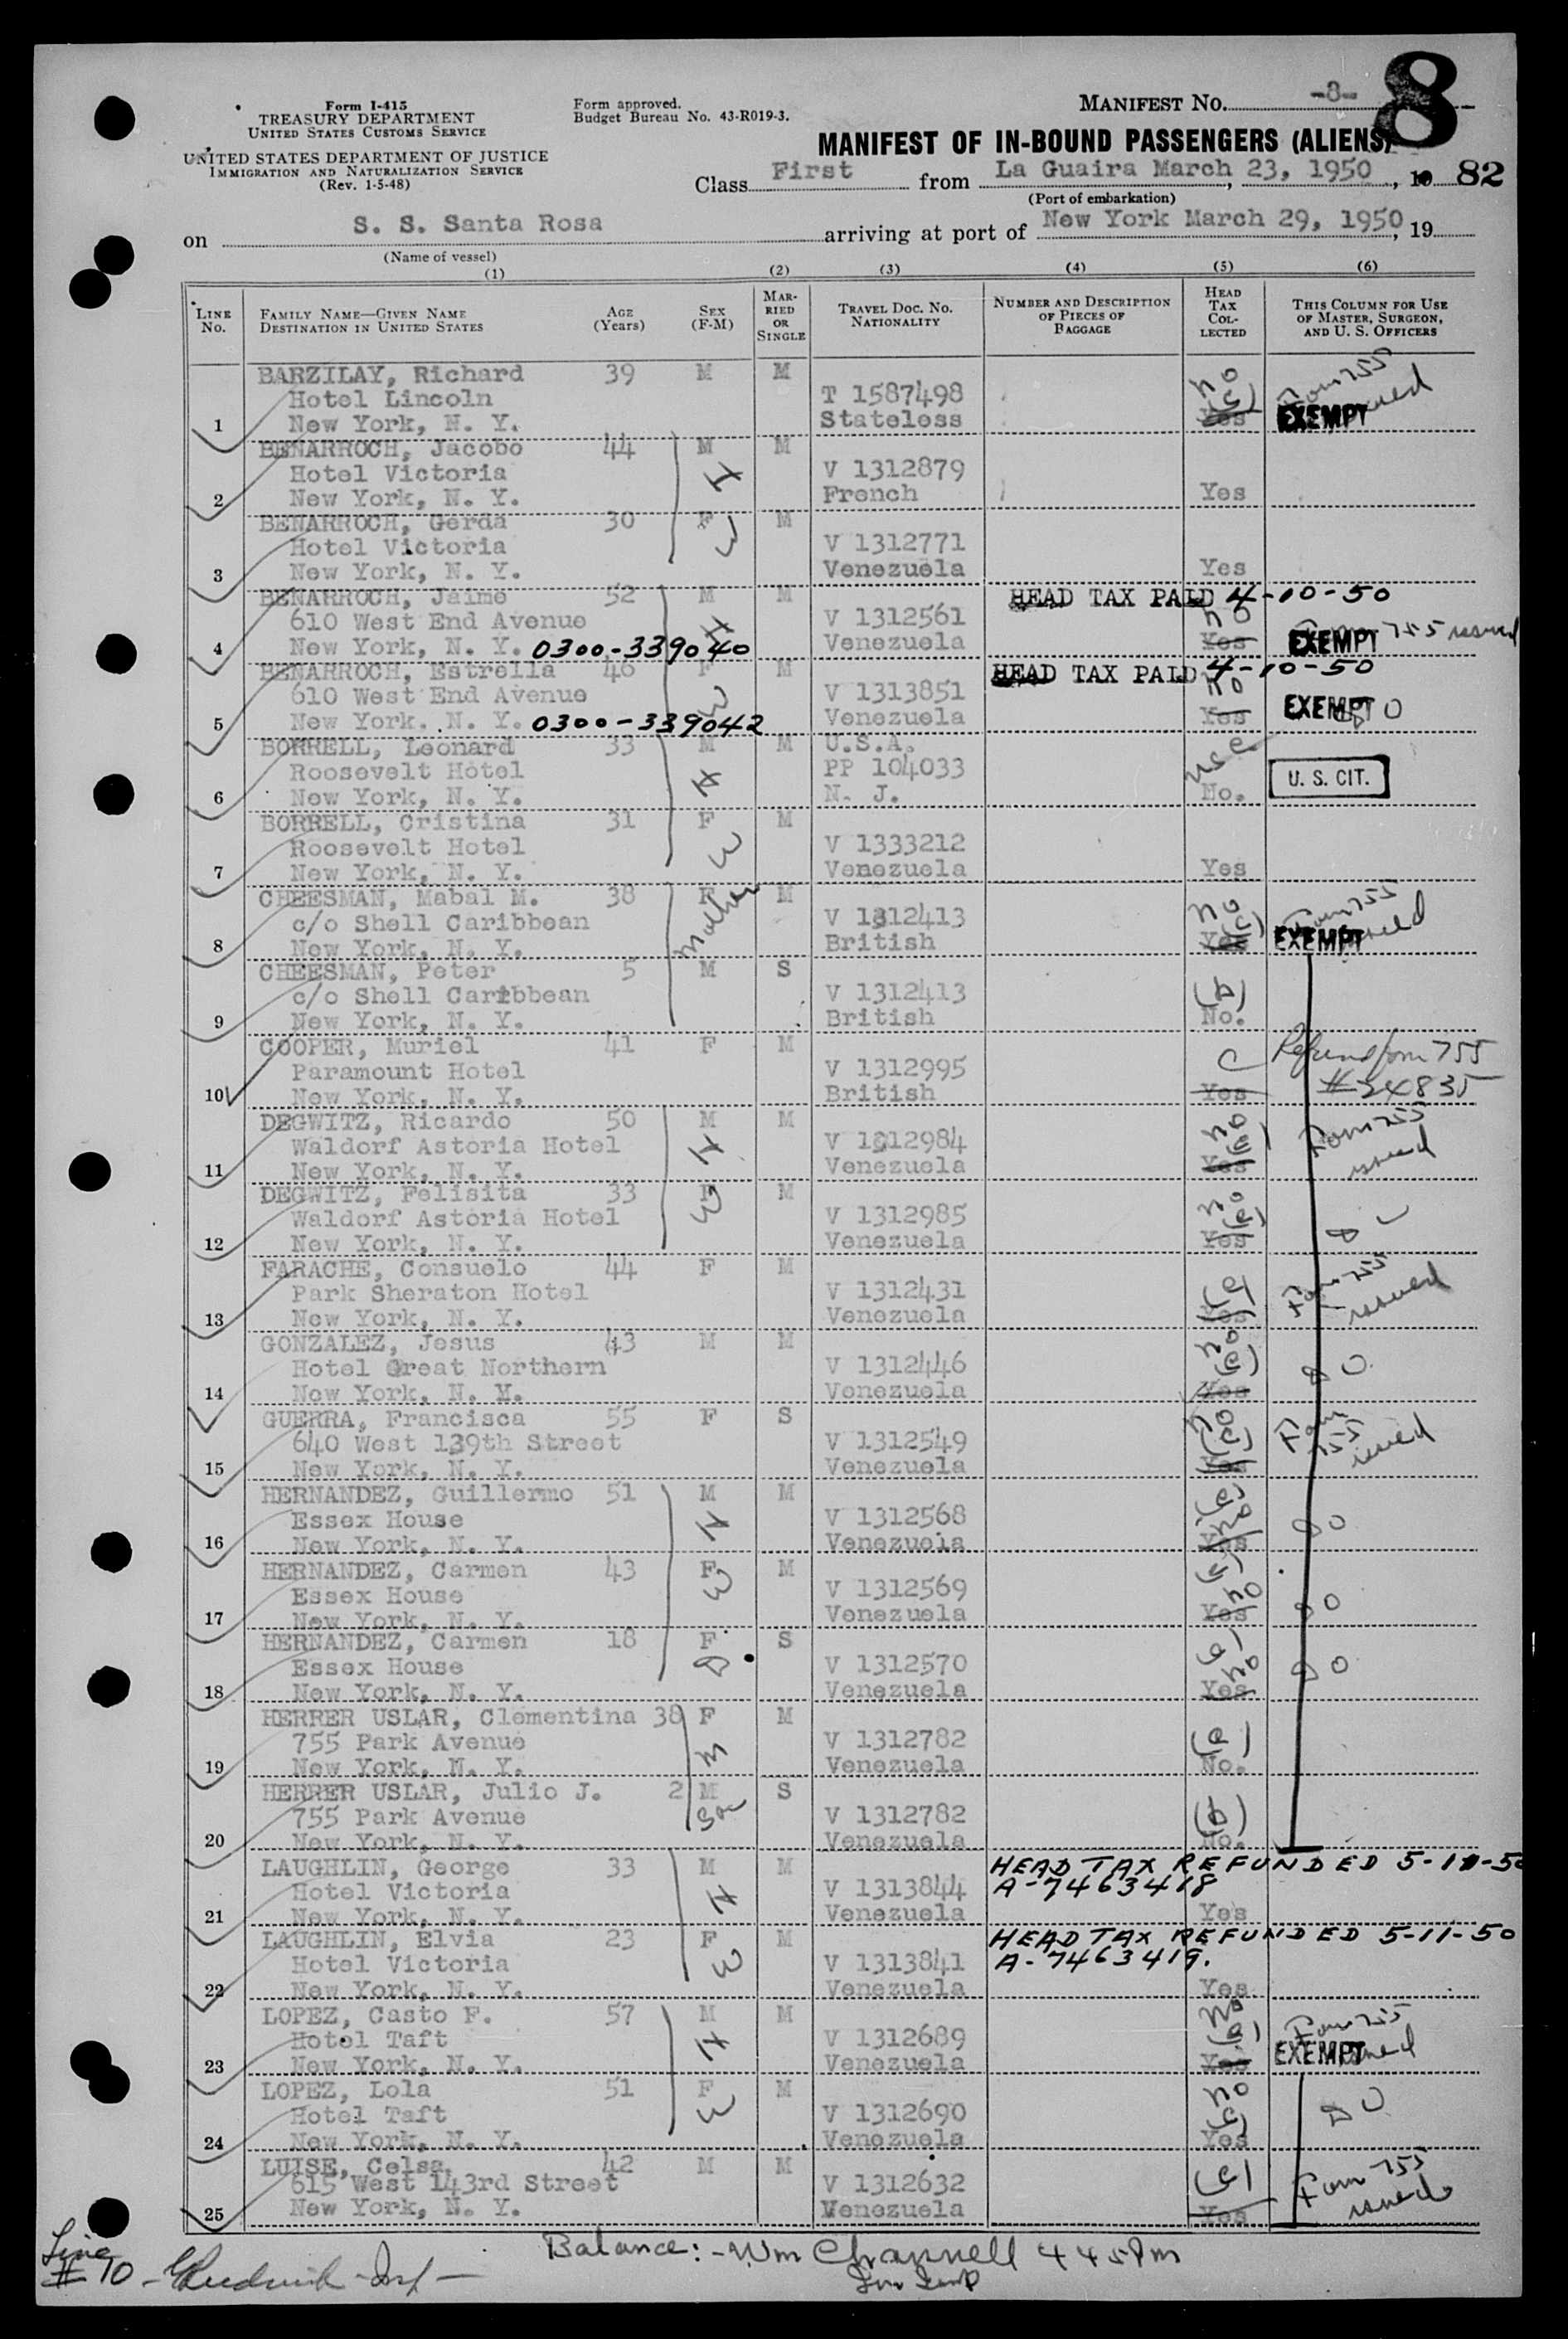 Form I-415
TREASURY DEPARTMENT
UNITED STATES CUSTOMS SERVICE
UNITED STATES DEPARTMENT OF JUSTICE
IMMIGRATION AND NATURALIZATION SERVICE
(Rev. 1-5-48)
Form approved.
Budget Bureau No. 43-R019-3.
MANIFEST NO. -8-
8
MANIFEST OF IN-BOUND PASSENGERS (ALIENS)
Class First from La Guaira March 23, 1950, 19 82
(Port of embarkation)
on S. S. Santa Rosa arriving at port of New York March 29, 1950, 19
(Name of vessel)
(1) (2) (3) (4) (5) (6)
LINE No. FAMILY NAME—GIVEN NAME DESTINATION IN UNITED STATES AGE (Years) SEX (F-M) MARRIED OR SINGLE TRAVEL DOC. NO. NATIONALITY NUMBER AND DESCRIPTION OF PIECES OF BAGGAGE HEAD TAX COLLECTED THIS COLUMN FOR USE OF MASTER, SURGEON, AND U. S. OFFICERS
BARZILAY, Richard 39 M M
Hotel Lincoln T 1587498 no Form 755 issued
1 New York, N. Y. Stateless Yes EXEMPT
BENARROCH, Jacobo 44 M M
Hotel Victoria V 1312879 H
2 New York, N. Y. French Yes
BENARROCH, Gerda 30 F M
Hotel Victoria V 1312771 W
3 New York, N. Y. Venezuela Yes
BENARROCH, Jaime 52 M M HEAD TAX PAID 4-10-50
610 West End Avenue H V 1312561 no
4 New York, N. Y. 0300-339040 Venezuela Yes EXEMPT Form 755 issued
BENARROCH, Estrella 46 F M HEAD TAX PAID 4-10-50
610 West End Avenue W V 1313851 no
5 New York. N. Y. 0300-339042 Venezuela Yes EXEMPT do
BORRELL, Leonard 33 M M U.S.A.
Roosevelt Hotel H PP 104033 usc
6 New York, N. Y. N. J. No. U. S. CIT.
BORRELL, Cristina 31 F M
Roosevelt Hotel W V 1333212
7 New York, N. Y. Venezuela Yes
CHEESMAN, Mabal M. 38 F M
c/o Shell Caribbean Mother V 1312413 no Form 755 issued
8 New York, N. Y. British Yes EXEMPT
CHEESMAN, Peter 5 M S
c/o Shell Caribbean V 1312413 (b)
9 New York, N. Y. British No.
COOPER, Muriel 41 F M
Paramount Hotel V 1312995 C Refund form 755
10 New York, N. Y. British Yes #34835
DEGWITZ, Ricardo 50 M M
Waldorf Astoria Hotel H V 1312984 no Form 755 issued
11 New York, N. Y. Venezuela Yes
DEGWITZ, Felisita 33 F M
Waldorf Astoria Hotel W V 1312985 no do
12 New York, N. Y. Venezuela Yes
FARACHE, Consuelo 44 F M
Park Sheraton Hotel V 1312431 Form 755 issued
13 New York, N. Y. Venezuela Yes
GONZALEZ, Jesus 43 M M
Hotel Great Northern V 1312446 no do
14 New York, N. Y. Venezuela Yes
GUERRA, Francisca 55 F S
640 West 139th Street V 1312549 no Form 755 issued
15 New York, N. Y. Venezuela Yes
HERNANDEZ, Guillermo 51 M M
Essex House H V 1312568 no do
16 New York, N. Y. Venezuela Yes
HERNANDEZ, Carmen 43 F M
Essex House W V 1312569 no do
17 New York, N. Y. Venezuela Yes
HERNANDEZ, Carmen 18 F S
Essex House D. V 1312570 no do
18 New York, N. Y. Venezuela Yes
HERRER USLAR, Clementina 38 F M
755 Park Avenue M V 1312782
19 New York, N. Y. Venezuela No.
HERRER USLAR, Julio J. 2 M S
755 Park Avenue Son V 1312782 (b)
20 New York, N. Y. Venezuela No.
LAUGHLIN, George 33 M M HEAD TAX REFUNDED 5-11-50
Hotel Victoria H V 1313844 A-7463418
21 New York, N. Y. Venezuela Yes
LAUGHLIN, Elvia 23 F M HEAD TAX REFUNDED 5-11-50
Hotel Victoria W V 1313841 A-7463419.
22 New York, N. Y. Venezuela Yes
LOPEZ, Casto F. 57 M M
Hotel Taft H V 1312689 no Form 755 issued
23 New York, N. Y. Venezuela Yes EXEMPT
LOPEZ, Lola 51 F M
Hotel Taft W V 1312690 no do
24 New York, N. Y. Venezuela Yes
LUISE, Celsa 42 M M
615 West 143rd Street V 1312632 Form 755 issued
25 New York, N. Y. Venezuela Yes
Balance: - Wm Channell 445 Pm
Line #10